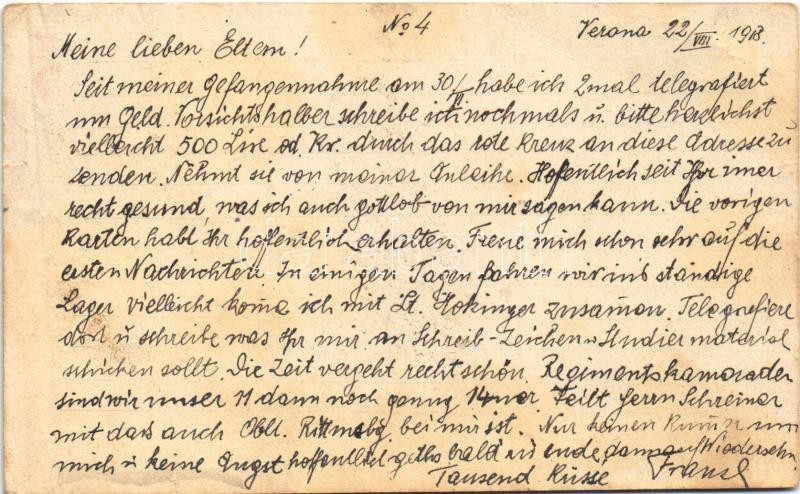 No 4
Verona 22/VIII. 1918.
Meine lieben Eltern!
Seit meiner Gefangennahme am 30/ habe ich 2mal telegrafiert
um Geld. Vorsichtshalber schreibe ich nochmals u. bitte herzlichst
vielleicht 500 Lire od. Kr. durch das rote Kreuz an diese Adresse zu
senden. Nehmt sie von meiner Anleihe. Hoffentlich seit Ihr imer
recht gesund, was ich auch gottlob von mir sagen kann. Die vorigen
Karten habt Ihr hoffentlich erhalten. Freue mich schon sehr auf die
ersten Nachrichten. In einigen Tagen fahren wir ins ständige
Lager vielleicht kom̄e ich mit Lt. Hokinger zusam̄en. Telegrafiere
dort u schreibe was Ihr mir an Schreib-Zeichen- Studiermaterial
schicken sollt. Die Zeit vergeht recht schön. Regimentskameraden
sind wir unser 11 dann noch genug 14ner Teilt Herrn Schreiner
mit dass auch Oblt. bei mir ist. Nur keinen um
mich u keine Angst hoffentlich gehts bald zu ende, dann auf Wiedersehn
Tausend Küsse Franzl